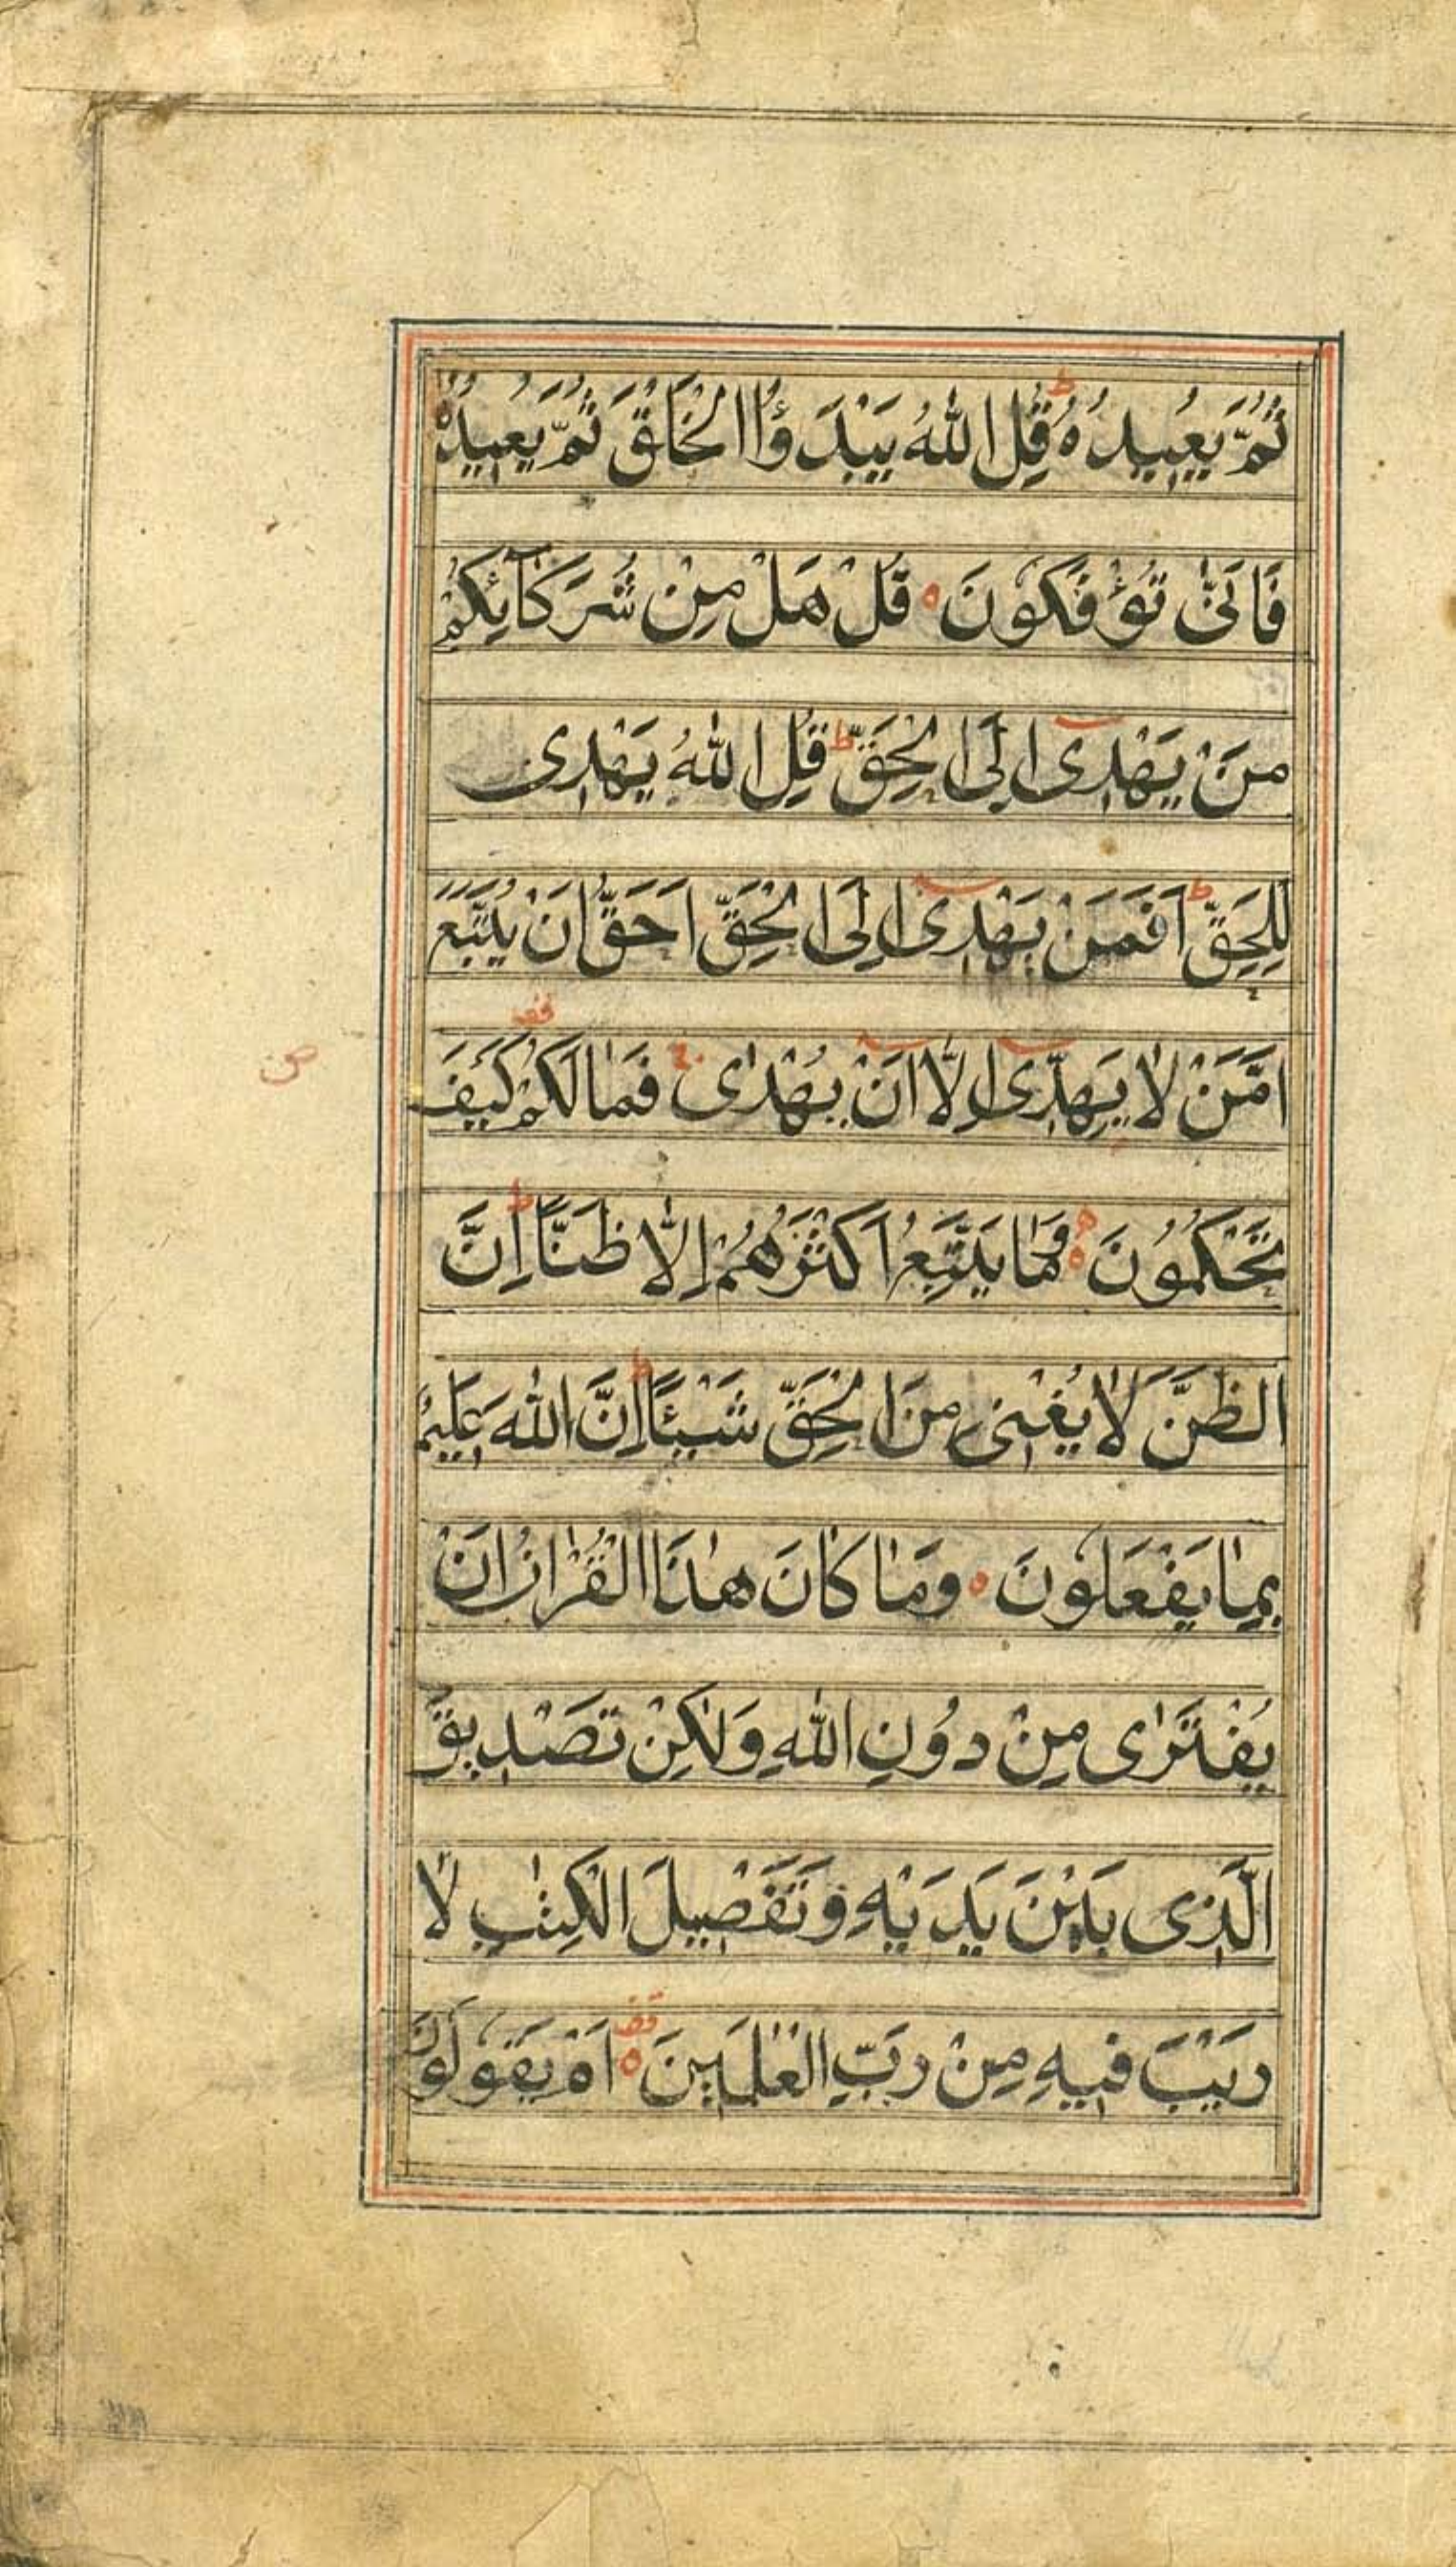 ثُمَّ يُعِيدُهُ ؕ قُلِ اللّٰهُ يَبْدَؤُا الْخَلْقَ ثُمَّ يُعِيدُهُ
فَاَنّٰى تُؤْفَكُوْنَ ه قُلْ هَلْ مِنْ شُرَكَآئِكُمْ
مَنْ يَهْدِىٓ اِلَى الْحَقِّ ؕ قُلِ اللّٰهُ يَهْدِى
لِلْحَقِّ ؕ اَفَمَنْ يَهْدِىٓ اِلَى الْحَقِّ اَحَقُّ اَنْ يُتَّبَعَ
اَمَّنْ لَا يَهِدِّىٓ اِلَّآ اَنْ يُهْدٰى ج فَمَا لَكُمْ قف كَيْفَ
ص
تَحْكُمُوْنَ ه وَمَا يَتَّبِعُ اَكْثَرُهُمْ اِلَّا ظَنًّا ؕ اِنَّ
الظَّنَّ لَا يُغْنِى مِنَ الْحَقِّ شَيْئًا ؕ اِنَّ اللّٰهَ عَلِيمٌ
بِمَا يَفْعَلُوْنَ ه وَمَا كَانَ هٰذَا الْقُرْاٰنُ اَنْ
يُفْتَرٰى مِنْ دُوْنِ اللّٰهِ وَلٰكِنْ تَصْدِيقَ
الَّذِى بَيْنَ يَدَيْهِ وَتَفْصِيلَ الْكِتٰبِ لَا
رَيْبَ فِيهِ مِنْ رَبِّ الْعٰلَمِينَ ه قف اَمْ يَقُولُوْنَ